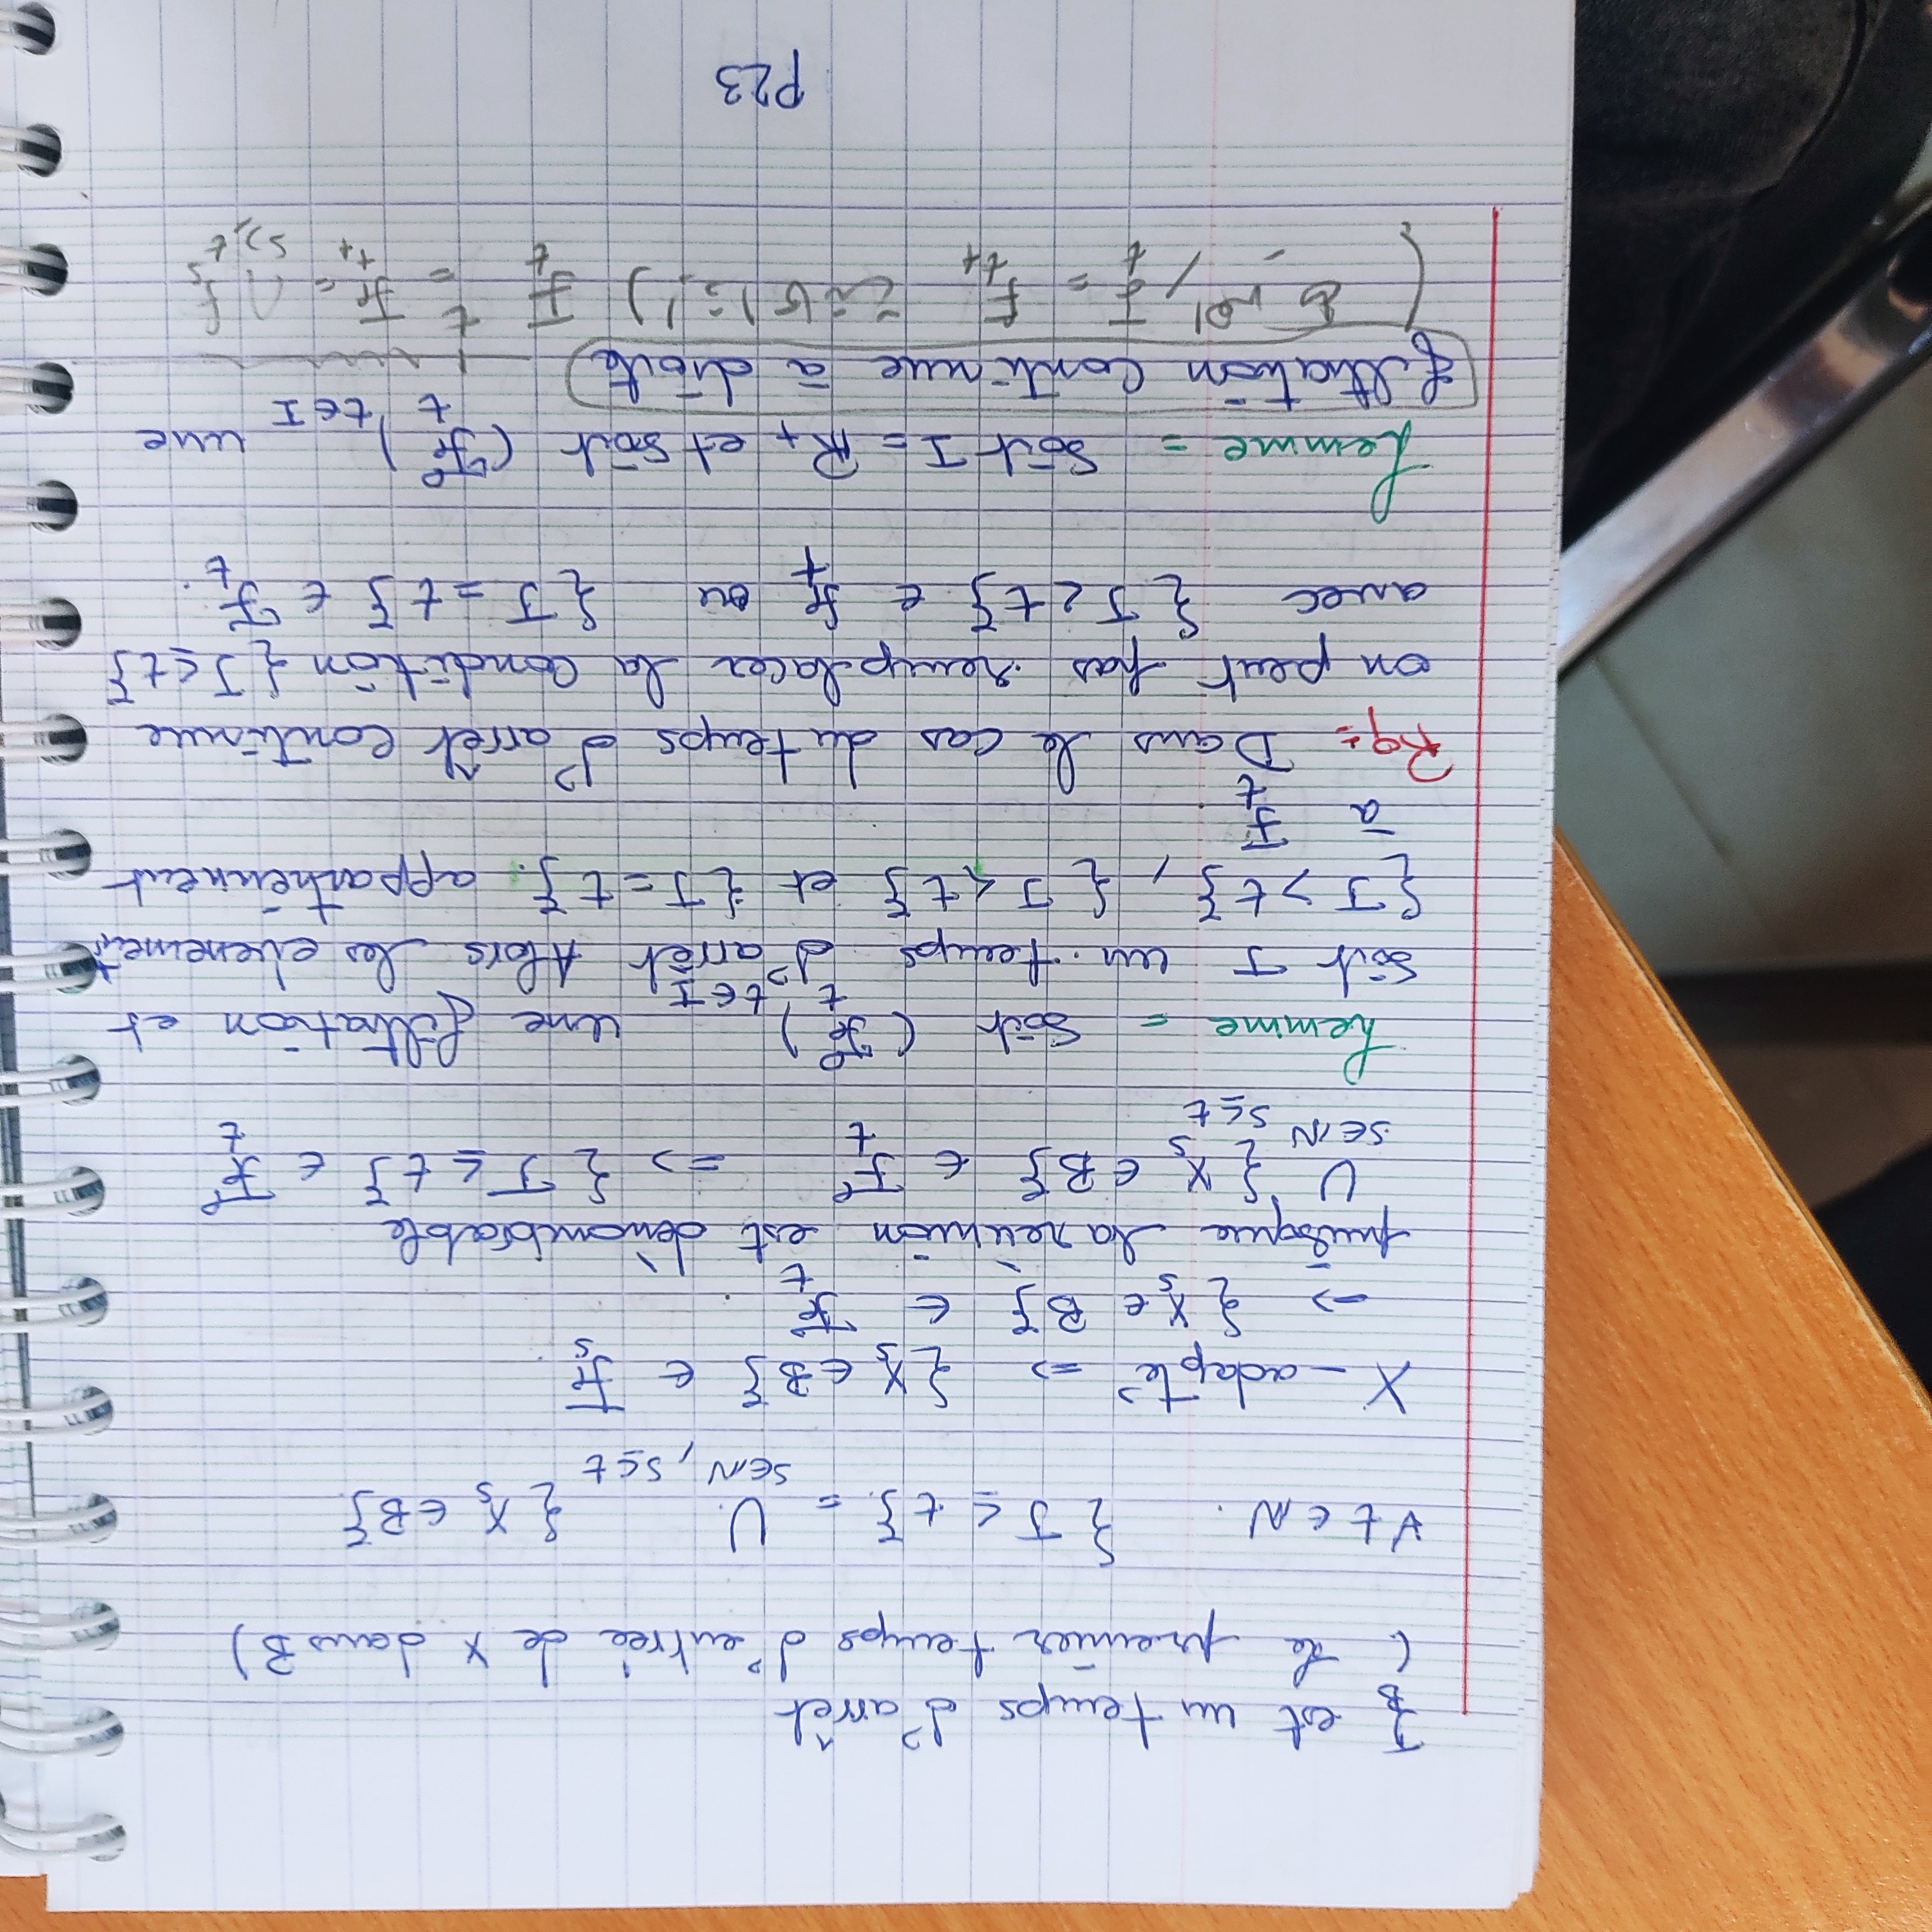 T_B est un temps d'arrêt
( Le premier temps d'entrée de X dans B)
∀ t ∈ N. { T ≤ t } = ∪_{s∈N, s≤t} { X_s ∈ B }
X - adapté => { X_s ∈ B } ∈ F_s.
=> { X_s ∈ B } ∈ F_t.
puisque la réunion est dénombrable
∪_{s∈N s≤t} { X_s ∈ B } ∈ F_t => { T ≤ t } ∈ F_t
Lemme = Soit (F_t)_{t∈I} une filtration et
soit T un temps d'arrêt Alors les evenement
{ T > t }, { T < t } et { T = t }. appartiennent
à F_t.
Rq = Dans le cas du temps d'arrêt continue
on peut pas remplacer la condition { T ≤ t }
avec { T < t } ∈ F_t ou { T = t } ∈ F_t.
Lemme = Soit I = R+ et soit (F_t)_{t∈I} une
filtration continue à droite
F_t = F_{t+} F_t = F_{t+} = ∩_{s>t} F_s
P23